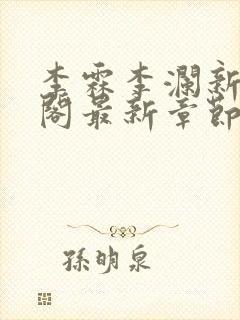 李霖李澜新
阁最新章節
孫明泉